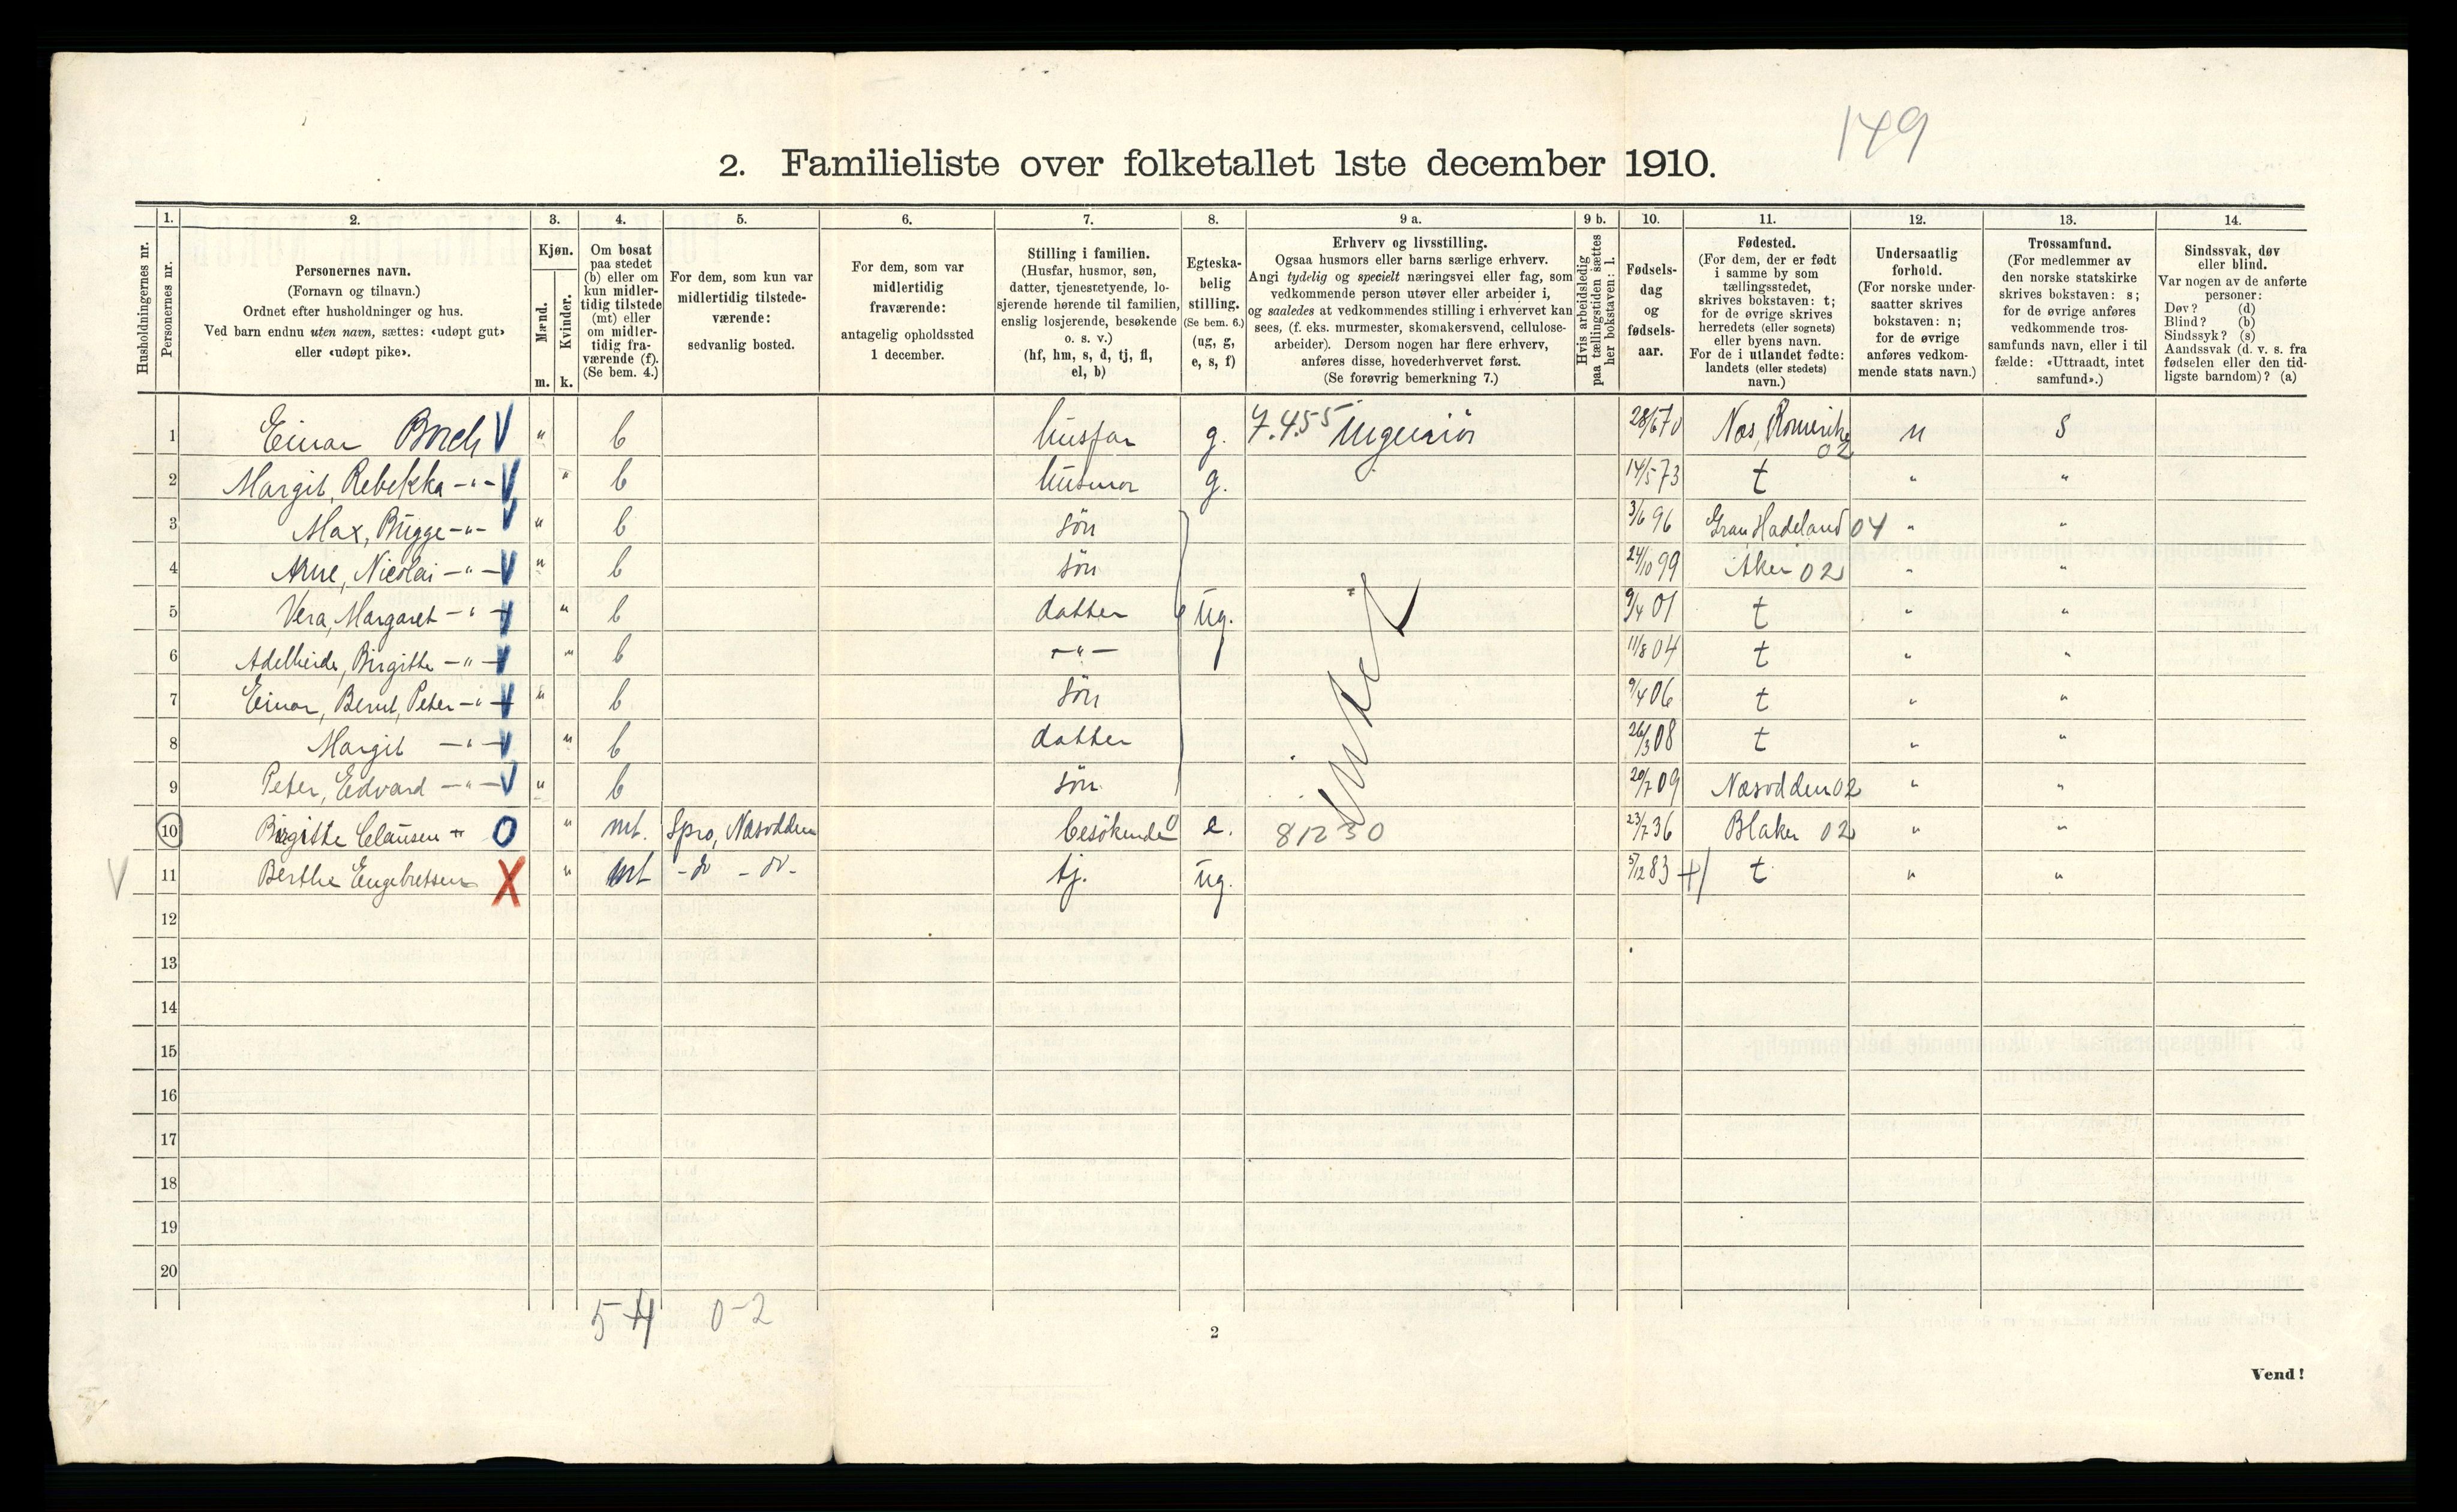 149
2. Familieliste over folketallet 1ste december 1910.
1. 2. 3. 4. 5. 6. 7. 8. 9 a. 9 b. 10. 11. 12. 13. 14.
Husholdningernes nr.
Personernes nr.
Personernes navn.
(Fornavn og tilnavn.)
Ordnet efter husholdninger og hus.
Ved barn endnu uten navn, sættes: «udøpt gut»
eller «udøpt pike».
Kjøn.
Mænd.
Kvinder.
m. k.
Om bosat
paa stedet
(b) eller om
kun midler-
tidig tilstede
(mt) eller
om midler-
tidig fra-
værende (f).
(Se bem. 4.)
For dem, som kun var
midlertidig tilstede-
værende:
sedvanlig bosted.
For dem, som var
midlertidig
fraværende:
antagelig opholdssted
1 december.
Stilling i familien.
(Husfar, husmor, søn,
datter, tjenestetyende, lo-
sjerende hørende til familien,
enslig losjerende, besøkende
o. s. v.)
(hf, hm, s, d, tj, fl,
el, b)
Egteska-
belig
stilling.
(Se bem. 6.)
(ug, g,
e, s, f)
Erhverv og livsstilling.
Ogsaa husmors eller barns særlige erhverv.
Angi tydelig og specielt næringsvei eller fag, som
vedkommende person utøver eller arbeider i,
og saaledes at vedkommendes stilling i erhvervet kan
sees, (f. eks. murmester, skomakersvend, cellulose-
arbeider). Dersom nogen har flere erhverv,
anføres disse, hovederhvervet først.
(Se forøvrig bemerkning 7.)
Hvis arbeidsledig
paa tællingstiden sættes
her bokstaven: l.
Fødsels-
dag
og
fødsels-
aar.
Fødested.
(For dem, der er født
i samme by som
tællingsstedet,
skrives bokstaven: t;
for de øvrige skrives
herredets (eller sognets)
eller byens navn.
For de i utlandet fødte:
landets (eller stedets)
navn.)
Undersaatlig
forhold.
(For norske under-
saatter skrives
bokstaven: n;
for de øvrige
anføres vedkom-
mende stats navn.)
Trossamfund.
(For medlemmer av
den norske statskirke
skrives bokstaven: s;
for de øvrige anføres
vedkommende tros-
samfunds navn, eller i til
fælde: «Uttraadt, intet
samfund».)
Sindssvak, døv
eller blind.
Var nogen av de anførte
personer:
Døv? (d)
Blind? (b)
Sindssyk? (s)
Aandssvak (d. v. s. fra
fødselen eller den tid-
ligste barndom)? (a)
1 Einar Borch V " b husfar g. 7.455 Ingeniör 28/6 70 Næs, Romerike 02 n s
2 Margit, Rebekka -"- V " b husmor g. 14/5 73 t " "
3 Max, Bugge -"- V " b sön 3/6 96 Gran, Hadeland 04 " "
4 Arne, Nicolai -"- V " b sön 24/10 99 Aker 02 " "
5 Vera, Margaret -"- V " b datter ug. 9/4 01 t " "
6 Adelheide, Birgitte -"- V " b -"- 11/8 04 t " "
7 Einar, Bernt, Peter -"- V " b sön 9/4 06 t " "
8 Margit -"- V " b datter 26/3 08 t " "
9 Peter, Edvard -"- V " b sön 20/7 09 Næsodden 02 " "
10 Birgitte Clausen O " mt. Spro, Næsodden besökende e. 81230 23/7 36 Blaker 02 " "
V 11 Berthe Engebretsen X " mt - do - do - tj. ug. 5/12 83 t " "
12
13
14
15
16
17
18
19
20
5-4 0-2
2
Vend!